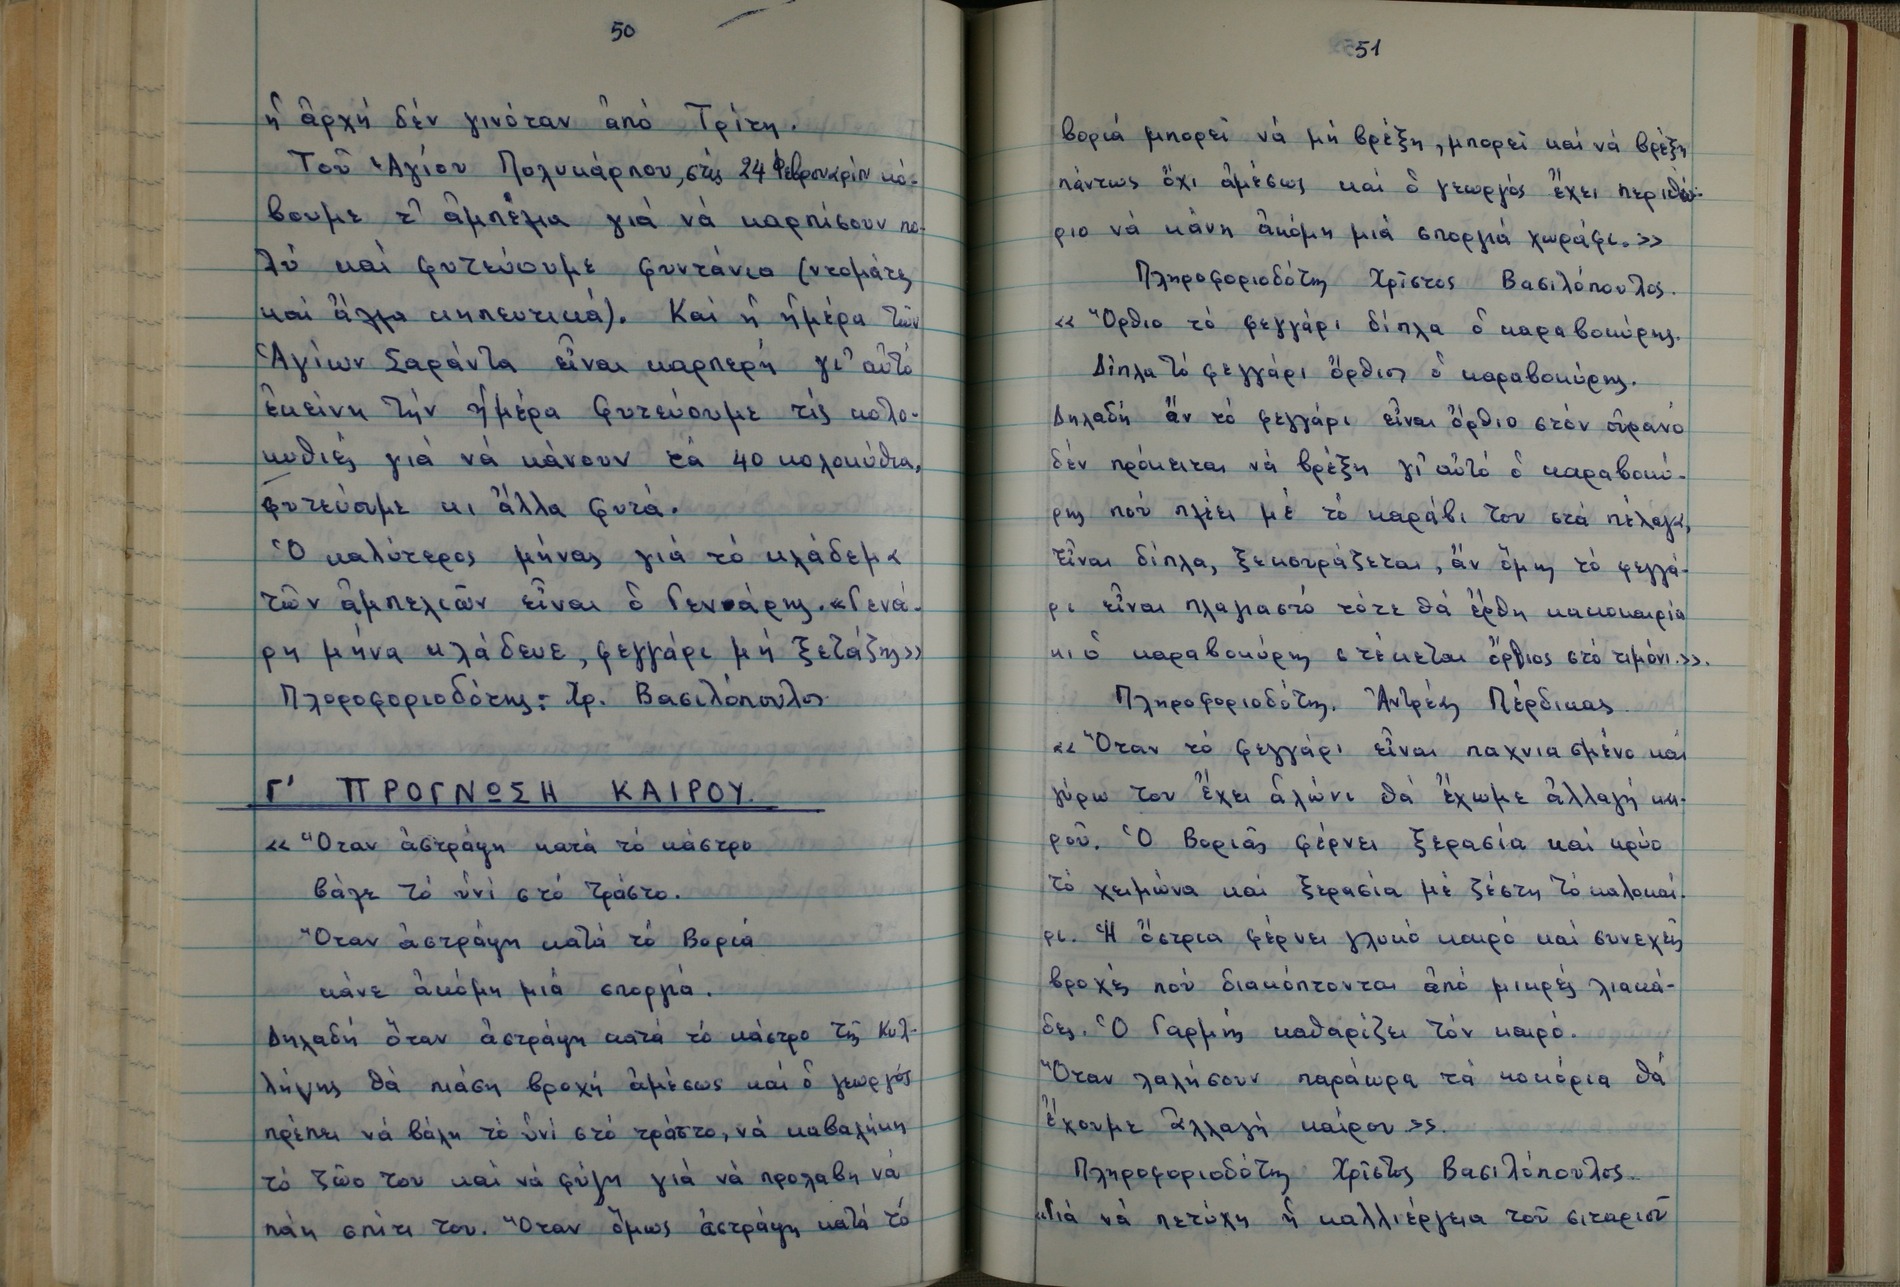 50
ἡ ἀρχή δέν γινόταν ἀπό Τρίτη.
Τοῦ Ἁγίου Πολυκάρπου, στίς 24 Φεβρουαρίου κό-
βουμε τ' ἀμπέλια γιά νά καρπίσουν πο-
λύ καί φυτεύουμε φυντάνια (ντομάτες
καί ἄλλα κηπευτικά). Καί ἡ ἡμέρα τῶν
Ἁγίων Σαράντα εἶναι καρπερή γι' αὐτό
ἐκείνη τήν ἡμέρα φυτεύουμε τίς κολο-
κυθιές γιά νά κάνουν τά 40 κολοκύθια,
φυτεύουμε κι ἄλλα φυτά.
Ὁ καλύτερος μήνας γιά τό κλάδεμα
τῶν ἀμπελιῶν εἶναι ὁ Γενάρης. «Γενά-
ρη μήνα κλάδευε, φεγγάρι μή ξετάζης»
Πλοροφοριοδότης: Χρ. Βασιλόπουλος
Γ' ΠΡΟΓΝΩΣΗ ΚΑΙΡΟΥ.
« Ὅταν ἀστράψη κατά τό κάστρο
βάλε τό ὑνί στό τράστο.
Ὅταν ἀστράψη κατά τό Βοριά
κάνε ἀκόμη μιά σποριά.
Δηλαδή ὅταν ἀστράψη κατά τό κάστρο τῆς Κυλ-
λήνης θά πιάση βροχή ἀμέσως καί ὁ γεωργός
πρέπει νά βάλη τό ὑνί στό τράστο, νά καβαλήκη
τό ζῶο του καί νά φύγη γιά νά προλαβη νά
πάη σπίτι του. Ὅταν ὅμως ἀστράψη κατά τό
51
βοριά μπορεῖ νά μή βρέξη, μπορεῖ καί νά βρέξη
πάντως ὄχι ἀμέσως καί ὁ γεωργός ἔχει περιθώ-
ριο νά κάνη ἀκόμη μιά σποριά χωράφι.»
Πληροφοριοδότης Χρῖστος Βασιλόπουλος.
« Ὄρθιο τό φεγγάρι δίπλα ὁ καραβοκύρης.
Δίπλα τό φεγγάρι ὄρθιος ὁ καραβοκύρης.
Δηλαδή ἄν τό φεγγάρι εἶναι ὄρθιο στόν οὐρανό
δέν πρόκειται νά βρέξη γι' αὐτό ὁ καραβοκύ-
ρης πού πλέει μέ τό καράβι του στά πέλαγα,
εἶναι δίπλα, ξεκουράζεται, ἄν ὅμως τό φεγγά-
ρι εἶναι πλαγιαστό τότε θά ἔρθη κακοκαιρία
κι ὁ καραβοκύρης στέκεται ὄρθιος στό τιμόνι.».
Πληροφοριοδότης. Ἀντρέας Πέρδικας
« Ὅταν τό φεγγάρι εἶναι παχνιασμένο καί
γύρω του ἔχει ἁλώνι θά ἔχωμε ἀλλαγή και-
ροῦ. Ὁ Βοριᾶς φέρνει ξερασία και κρύο
τό χειμώνα καί ξερασία μέ ζέστη τό καλοκαί-
ρι. Ἡ ὄστρια φέρνει γλυκό καιρό καί συνεχεῖς
βροχές πού διακόπτονται ἀπό μικρές λιακά-
δες. Ὁ Γαρμπής καθαρίζει τόν καιρό.
Ὅταν λαλήσουν παράωρα τά κοκόρια θά
ἔχουμε ἀλλαγή καίρου».
Πληροφοριοδότης Χρῖστος Βασιλόπουλος.
«Γιά νά πετύχη ἡ καλλιέργεια τοῦ σιταριοῦ